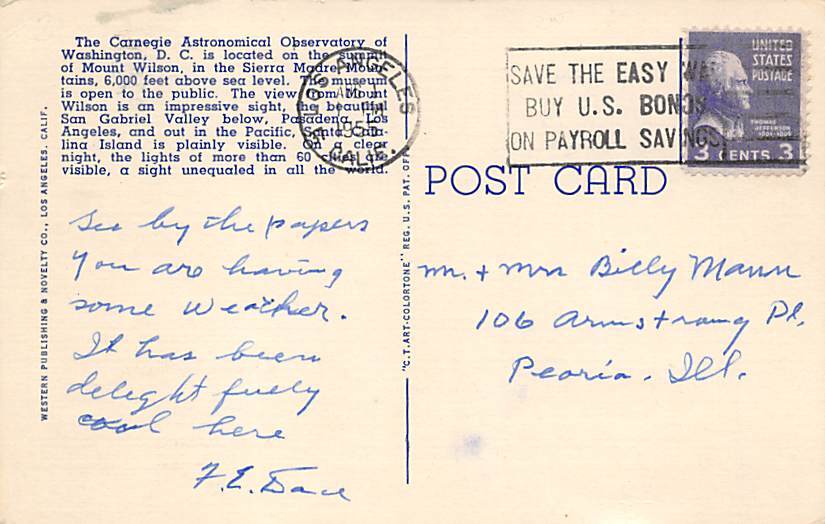 The Carnegie Astronomical Observatory of
Washington, D. C. is located on the summit
of Mount Wilson, in the Sierra Madre Moun-
tains, 6,000 feet above sea level. The museum
is open to the public. The view from Mount
Wilson is an impressive sight, the beautiful
San Gabriel Valley below, Pasadena, Los
Angeles, and out in the Pacific, Santa Cata-
lina Island is plainly visible. On a clear
night, the lights of more than 60 cities are
visible, a sight unequaled in all the world.
WESTERN PUBLISHING & NOVELTY CO., LOS ANGELES, CALIF.
See by the papers
you are having
some weather.
It has been
delightfully
cool here
F. E.
LOS ANGELES
1955
CALIF.
SAVE THE EASY WAY
BUY U.S. BONDS
ON PAYROLL SAVINGS
UNITED
STATES
POSTAGE
THOMAS
JEFFERSON
1801-1809
3 CENTS 3
POST CARD
"C.T. ART-COLORTONE" REG. U.S. PAT. OFF.
Mr. + Mrs Billy Mann
106 Armstrong Pl.
Peoria. Ill.